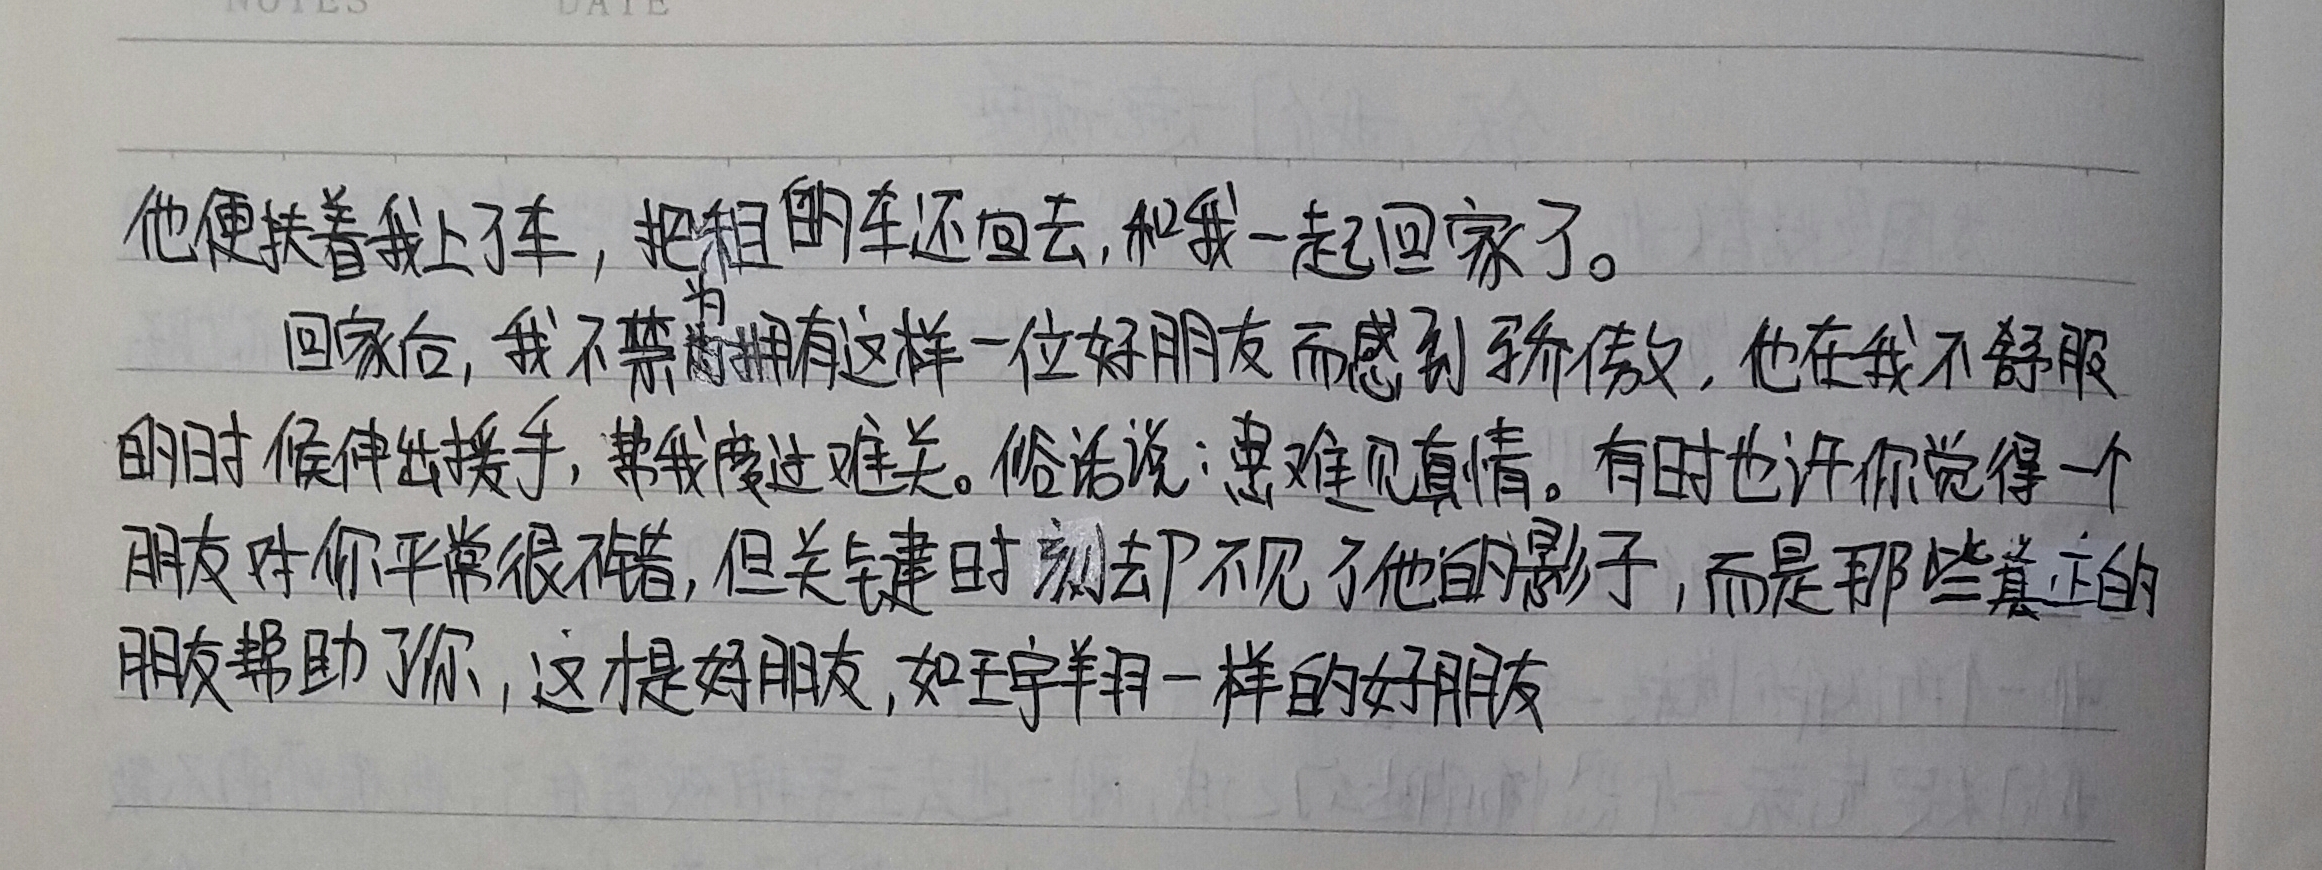 NOTES DATE
他便扶着我上了车，把租的车还回去，和我一起回家了。
回家后，我不禁为拥有这样一位好朋友而感到骄傲，他在我不舒服
的时候伸出援手，帮我度过难关。俗话说：患难见真情。有时也许你觉得一个
朋友对你平常很不错，但关键时刻却不见了他的影子，而是那些真正的
朋友帮助了你，这才是好朋友，如王宇翔一样的好朋友